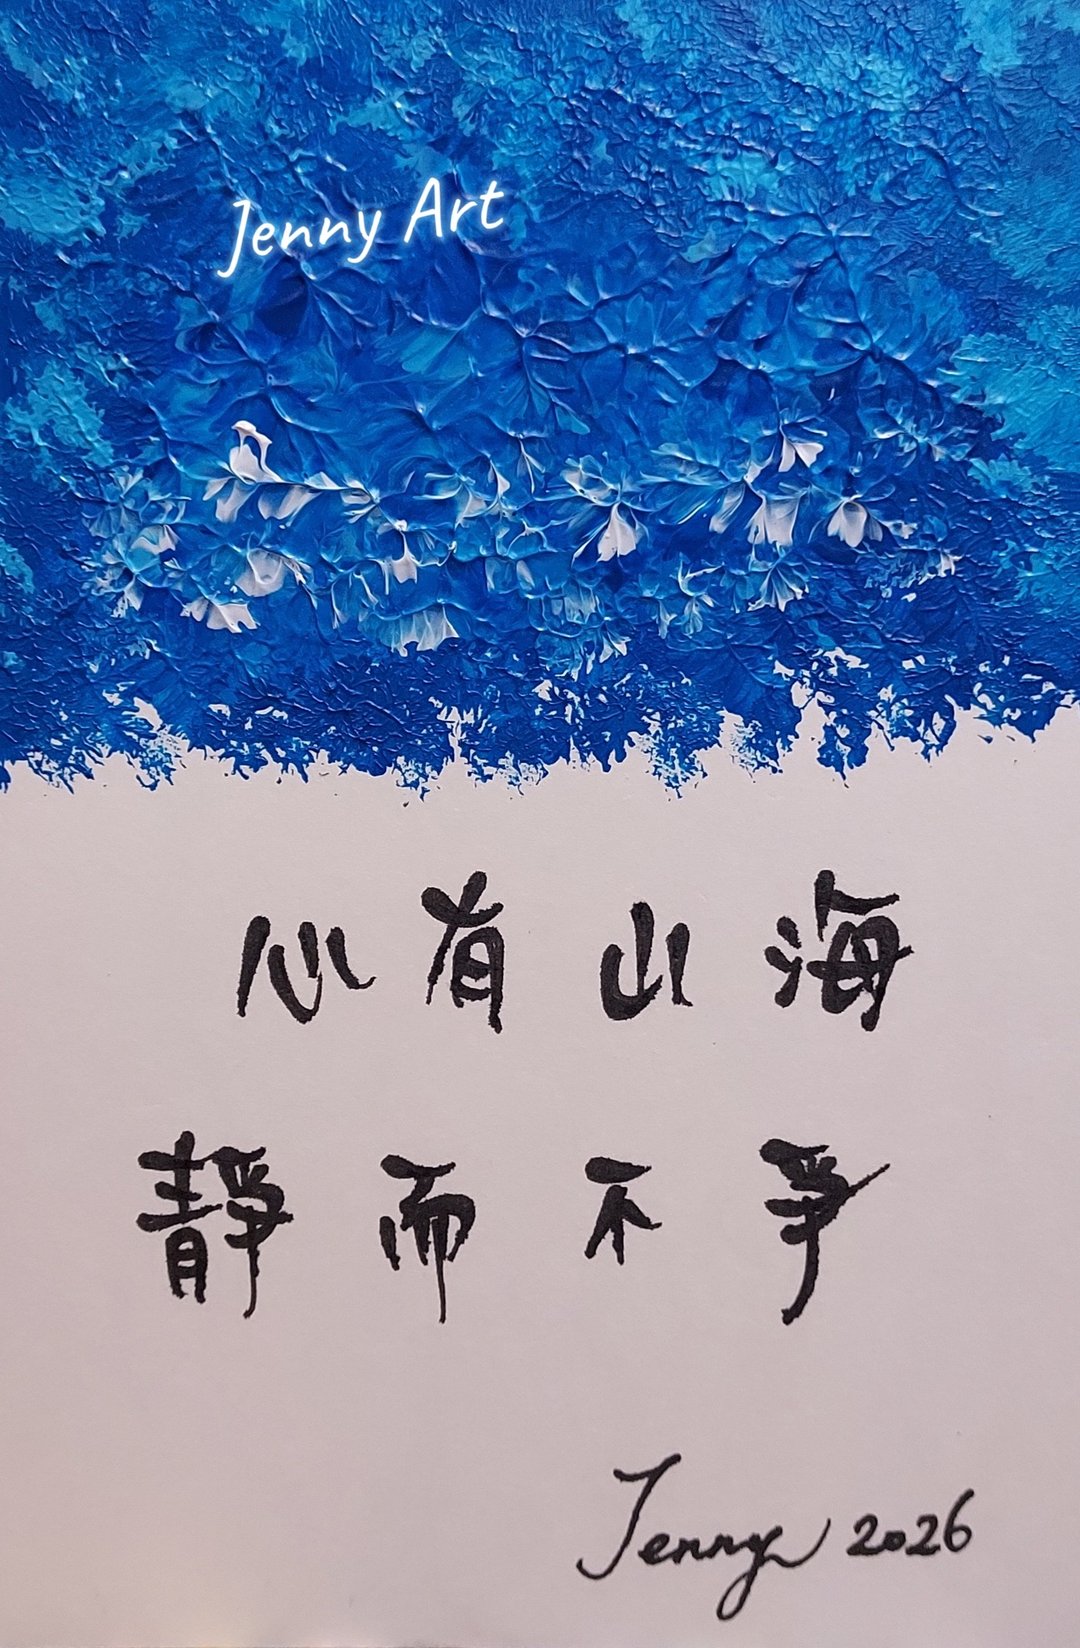 Jenny Art
心有山海
靜而不爭
Jenny 2026